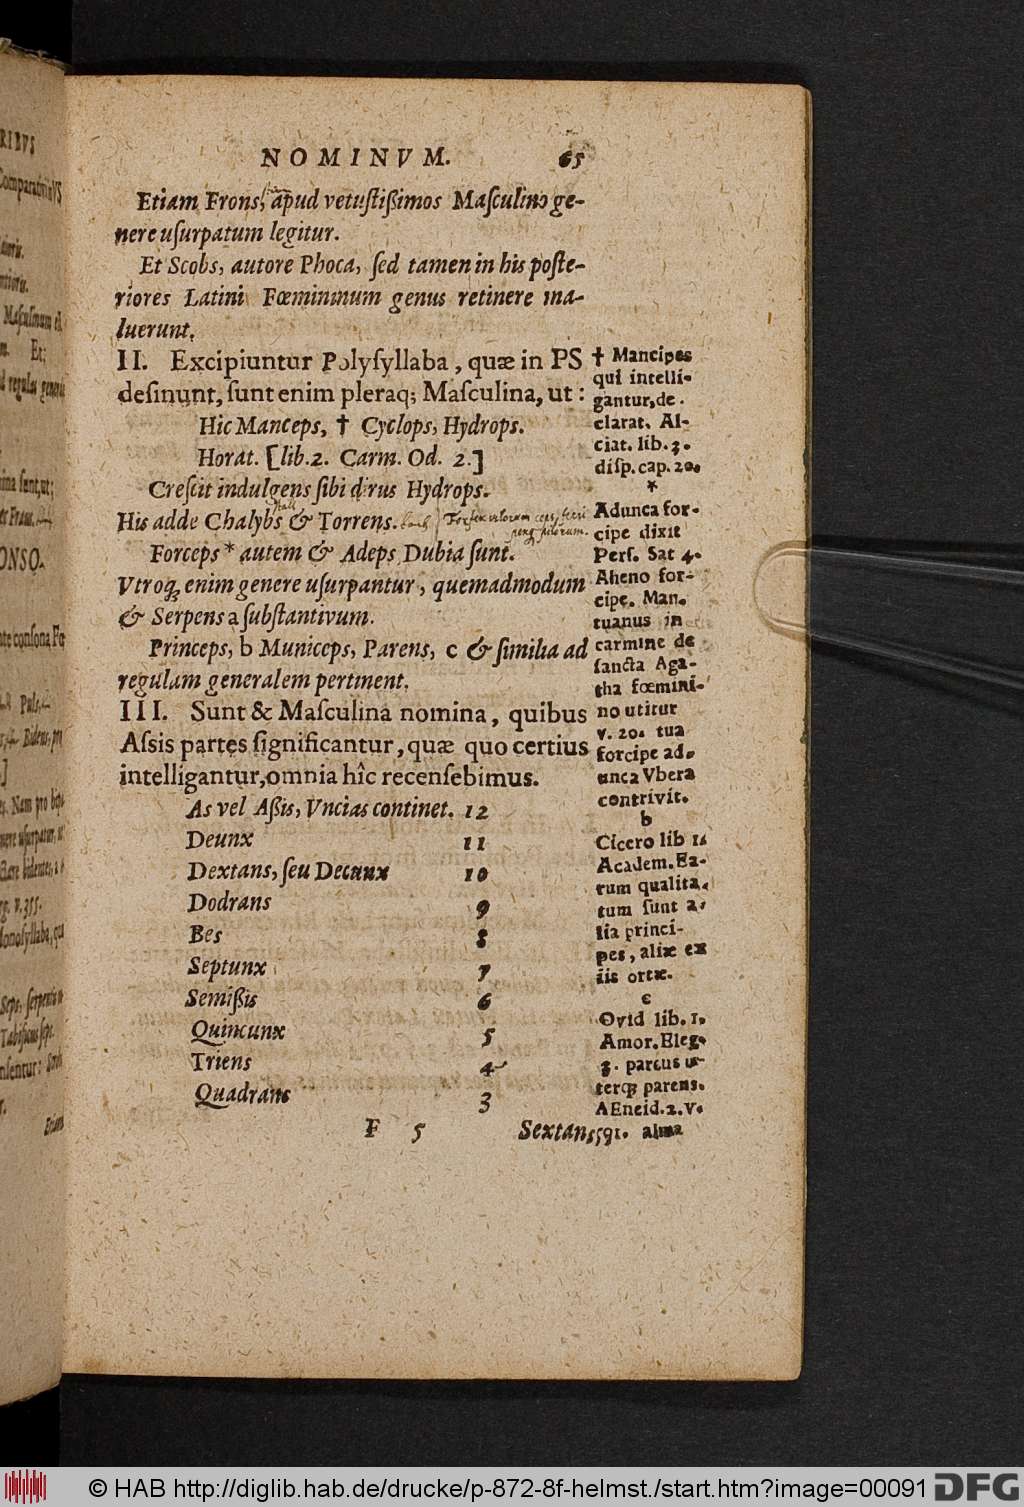 NOMINVM. 65
Etiam Frons, apud vetustißimos Masculino ge-
nere usurpatum legitur.
Et Scobs, autore Phoca, sed tamen in his poste-
riores Latini Fœmininum genus retinere ma-
luerunt.
II. Excipiuntur Polysyllaba, quæ in PS
desinunt, sunt enim pleraq; Masculina, ut:
Hic Manceps, † Cyclops, Hydrops.
Horat. [lib. 2. Carm. Od. 2.]
Crescit indulgens sibi dirus Hydrops.
His adde Chalybs & Torrens.
Forceps * autem & Adeps Dubia sunt.
Vtroq; enim genere usurpantur, quemadmodum
& Serpens a substantivum.
Princeps, b Municeps, Parens, c & similia ad
regulam generalem pertinent.
III. Sunt & Masculina nomina, quibus
Assis partes significantur, quæ quo certius
intelligantur, omnia hîc recensebimus.
As vel Aßis, Vncias continet. 12
Deunx 11
Dextans, seu Decunx 10
Dodrans 9
Bes 8
Septunx 7
Semißis 6
Quincunx 5
Triens 4
Quadrans 3
F 5 Sextans
† Mancipes
qui intelli-
gantur, de-
clarat. Al-
ciat. lib. 3.
disp. cap. 20.
*
Adunca for-
cipe dixit
Pers. Sat 4.
Aheno for-
cipe. Man-
tuanus in
carmine de
sancta Aga-
tha fœmini-
no utitur
v. 20. tua
forcipe ad-
unca Vbera
contrivit.
b
Cicero lib 1.
Academ. Ea-
rum qualita-
tum sunt a-
lia princi-
pes, aliæ ex
iis ortæ.
c
Ovid lib. 1.
Amor. Eleg.
3. parcus u-
terq; parens.
AEneid. 2. V.
591. alma
© HAB http://diglib.hab.de/drucke/p-872-8f-helmst./start.htm?image=00091
DFG